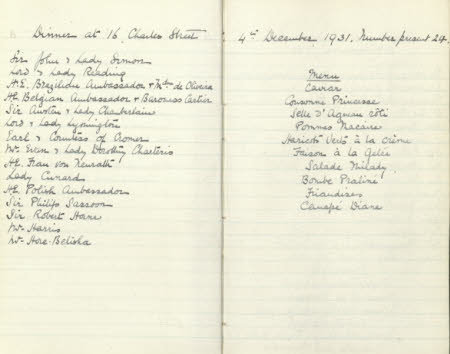 Dinner at 16, Charles Street
Sir John & Lady Simon
Lord & Lady Reading
H.E. Brazilian Ambassador & Mme de Oliveira
HE Belgian Ambassador & Baroness Cartier
Sir Austen & Lady Chamberlain
Lord & Lady Lymington
Earl & Countess of Cromer
Mr Evan & Lady Dorothy Charteris
HE Frau von Neurath
Lady Cunard
HE Polish Ambassador
Sir Philip Sassoon
Sir Robert Horne
Mr Harris
Mr Hore-Belisha
4th December 1931. Number present 24.
Menu
Caviar
Consommé Princesse
Selle d'Agneau rôti
Pommes Macaire
Haricots Verts à la Crème
Faisan à la Gelée
Salade Milady
Bombe Praline
Friandises
Canapé Diane